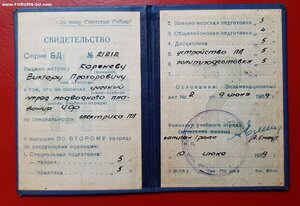 www.FORUMS-SU.com
«За нашу Советскую Родину!»
СВИДЕТЕЛЬСТВО
Серия БД №
Выдано матросу Кореневу
Виктору Прохоровичу
в том, что он окончил учебный
отряд подводного пла-
вания
по специальности электрика ПЛ
и выпущен ПО ВТОРОМУ разряду
со следующими оценками:
1. Специальная подготовка:
— теория 5
— практика 5
2. Военно-морская подготовка 5
3. Общевойсковая подготовка 5
4. Дисциплина 5
5. устройство ПЛ 5
6. политподготовка 5
Основание: Экзаменационный
акт № 2 9 июня 1959
Командир учебного отряда
капитан 1 ранга
10 июня 1959